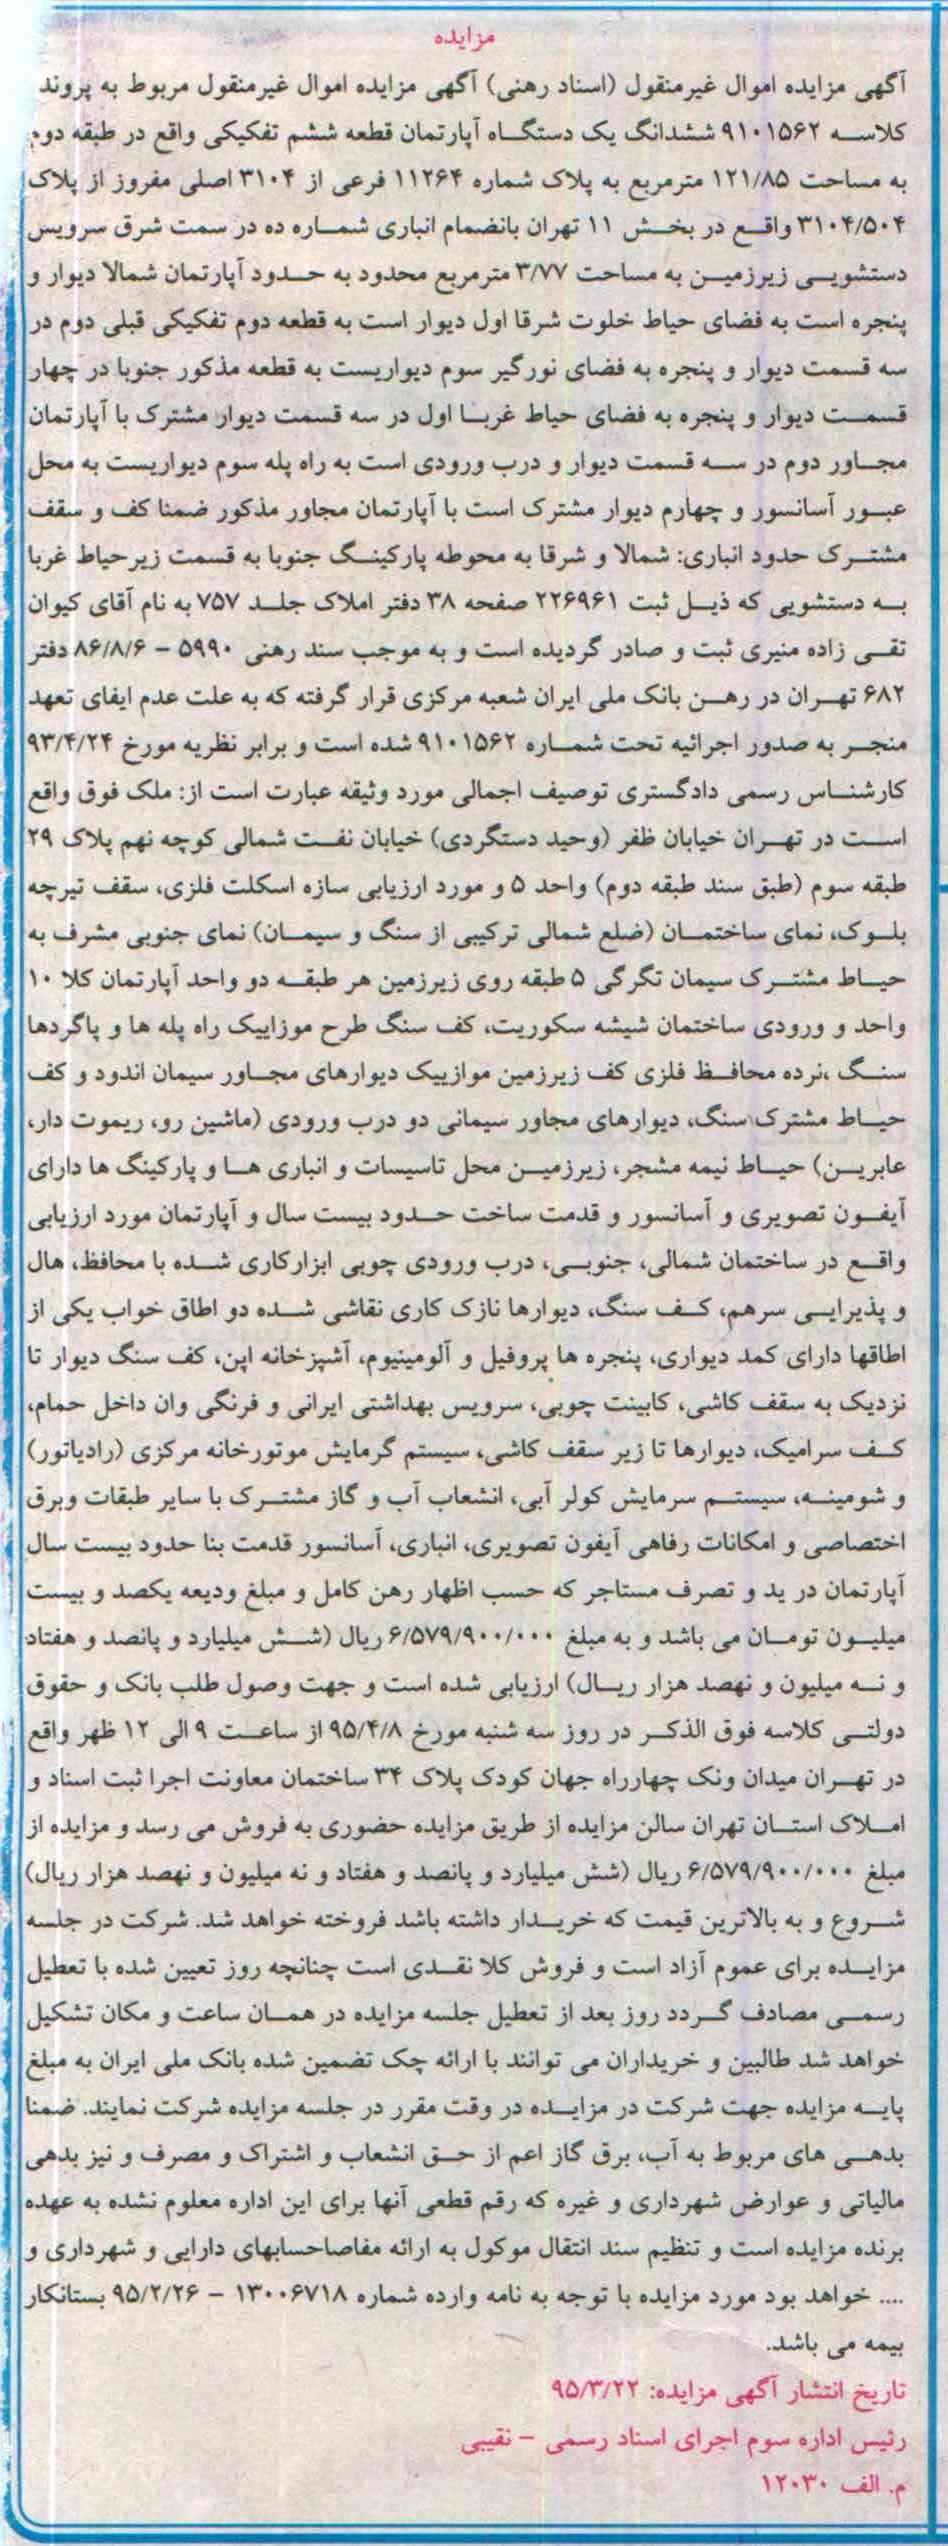 مزایده
آگهی مزایده اموال غیرمنقول (اسناد رهنی) آگهی مزایده اموال غیرمنقول مربوط به پروند
کلاسه ۹۱۰۱۵۶۲ ششدانگ یک دستگاه آپارتمان قطعه ششم تفکیکی واقع در طبقه دوم
به مساحت ۱۲۱/۸۵ مترمربع به پلاک شماره ۱۱۲۶۴ فرعی از ۳۱۰۴ اصلی مفروز از پلاک
۳۱۰۴/۵۰۴ واقع در بخش ۱۱ تهران بانضمام انباری شماره ده در سمت شرق سرویس
دستشویی زیرزمین به مساحت ۳/۷۷ مترمربع محدود به حدود آپارتمان شمالا دیوار و
پنجره است به فضای حیاط خلوت شرقا اول دیوار است به قطعه دوم تفکیکی قبلی دوم در
سه قسمت دیوار و پنجره به فضای نورگیر سوم دیواریست به قطعه مذکور جنوبا در چهار
قسمت دیوار و پنجره به فضای حیاط غربا اول در سه قسمت دیوار مشترک با آپارتمان
مجاور دوم در سه قسمت دیوار و درب ورودی است به راه پله سوم دیواریست به محل
عبور آسانسور و چهارم دیوار مشترک است با آپارتمان مجاور مذکور ضمنا کف و سقف
مشترک حدود انباری: شمالا و شرقا به محوطه پارکینگ جنوبا به قسمت زیرحیاط غربا
به دستشویی که ذیل ثبت ۲۲۶۹۶۱ صفحه ۳۸ دفتر املاک جلد ۷۵۷ به نام آقای کیوان
تقی زاده منیری ثبت و صادر گردیده است و به موجب سند رهنی ۵۹۹۰ – ۸۶/۸/۶ دفتر
۶۸۲ تهران در رهن بانک ملی ایران شعبه مرکزی قرار گرفته که به علت عدم ایفای تعهد
منجر به صدور اجرائیه تحت شماره ۹۱۰۱۵۶۲ شده است و برابر نظریه مورخ ۹۳/۴/۲۴
کارشناس رسمی دادگستری توصیف اجمالی مورد وثیقه عبارت است از: ملک فوق واقع
است در تهران خیابان ظفر (وحید دستگردی) خیابان نفت شمالی کوچه نهم پلاک ۲۹
طبقه سوم (طبق سند طبقه دوم) واحد ۵ و مورد ارزیابی سازه اسکلت فلزی، سقف تیرچه
بلوک، نمای ساختمان (ضلع شمالی ترکیبی از سنگ و سیمان) نمای جنوبی مشرف به
حیاط مشترک سیمان تگرگی ۵ طبقه روی زیرزمین هر طبقه دو واحد آپارتمان کلا ۱۰
واحد و ورودی ساختمان شیشه سکوریت، کف سنگ طرح موزاییک راه پله ها و پاگردها
سنگ ،نرده محافظ فلزی کف زیرزمین موازییک دیوارهای مجاور سیمان اندود و کف
حیاط مشترک سنگ، دیوارهای مجاور سیمانی دو درب ورودی (ماشین رو، ریموت دار،
عابرین) حیاط نیمه مشجر، زیرزمین محل تاسیسات و انباری ها و پارکینگ ها دارای
آیفون تصویری و آسانسور و قدمت ساخت حدود بیست سال و آپارتمان مورد ارزیابی
واقع در ساختمان شمالی، جنوبی، درب ورودی چوبی ابزارکاری شده با محافظ، هال
و پذیرایی سرهم، کف سنگ، دیوارها نازک کاری نقاشی شده دو اطاق خواب یکی از
اطاقها دارای کمد دیواری، پنجره ها پروفیل و آلومینیوم، آشپزخانه اپن، کف سنگ دیوار تا
نزدیک به سقف کاشی، کابینت چوبی، سرویس بهداشتی ایرانی و فرنگی وان داخل حمام،
کف سرامیک، دیوارها تا زیر سقف کاشی، سیستم گرمایش موتورخانه مرکزی (رادیاتور)
و شومینه، سیستم سرمایش کولر آبی، انشعاب آب و گاز مشترک با سایر طبقات وبرق
اختصاصی و امکانات رفاهی آیفون تصویری، انباری، آسانسور قدمت بنا حدود بیست سال
آپارتمان در ید و تصرف مستاجر که حسب اظهار رهن کامل و مبلغ ودیعه یکصد و بیست
میلیون تومان می باشد و به مبلغ ۶/۵۷۹/۹۰۰/۰۰۰ ریال (شش میلیارد و پانصد و هفتاد
و نه میلیون و نهصد هزار ریال) ارزیابی شده است و جهت وصول طلب بانک و حقوق
دولتی کلاسه فوق الذکر در روز سه شنبه مورخ ۹۵/۴/۸ از ساعت ۹ الی ۱۲ ظهر واقع
در تهران میدان ونک چهارراه جهان کودک پلاک ۳۴ ساختمان معاونت اجرا ثبت اسناد و
املاک استان تهران سالن مزایده از طریق مزایده حضوری به فروش می رسد و مزایده از
مبلغ ۶/۵۷۹/۹۰۰/۰۰۰ ریال (شش میلیارد و پانصد و هفتاد و نه میلیون و نهصد هزار ریال)
شروع و به بالاترین قیمت که خریدار داشته باشد فروخته خواهد شد. شرکت در جلسه
مزایده برای عموم آزاد است و فروش کلا نقدی است چنانچه روز تعیین شده با تعطیل
رسمی مصادف گردد روز بعد از تعطیل جلسه مزایده در همان ساعت و مکان تشکیل
خواهد شد طالبین و خریداران می توانند با ارائه چک تضمین شده بانک ملی ایران به مبلغ
پایه مزایده جهت شرکت در مزایده در وقت مقرر در جلسه مزایده شرکت نمایند. ضمنا
بدهی های مربوط به آب، برق گاز اعم از حق انشعاب و اشتراک و مصرف و نیز بدهی
مالیاتی و عوارض شهرداری و غیره که رقم قطعی آنها برای این اداره معلوم نشده به عهده
برنده مزایده است و تنظیم سند انتقال موکول به ارائه مفاصاحسابهای دارایی و شهرداری و
.... خواهد بود مورد مزایده با توجه به نامه وارده شماره ۱۳۰۰۶۷۱۸ – ۹۵/۲/۲۶ بستانکار
بیمه می باشد.
تاریخ انتشار آگهی مزایده: ۹۵/۳/۲۲
رئیس اداره سوم اجرای اسناد رسمی – نقیبی
م. الف ۱۲۰۳۰